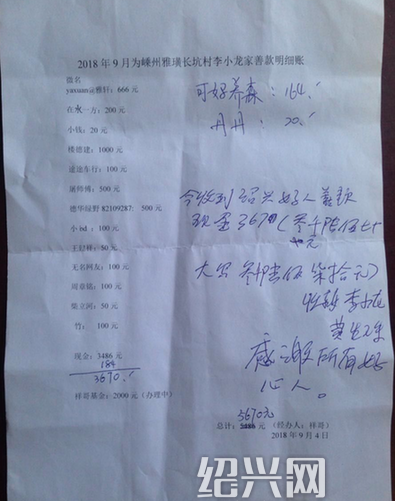 2018 年 9 月为嵊州雅璜长坑村李小龙家善款明细账
做名
yaxuan@雅轩：666 元
在水一方：200 元
小钱：20 元
楼德建：1000 元
通途车行：100 元
谢师傅：500 元
德华绿野 82109287：500 元
小 bd：100 元
王舒梓：50 元
无名网友：100 元
周童镐：100 元
柴立河：50 元
竹：100 元
现金：3486 元
184
3670.
祥哥基金：2000 元（办理中）
可好养森：164.
丹丹：20.
今收到绍兴好人善款
现金3670（叁千陆佰七十
元
大写 叁仟陆佰柒拾元）
李小龙
感谢所有好
心人。
5670元
总计：5486 元 （经办人：祥哥）
2018 年 9 月 4 日
绍兴网